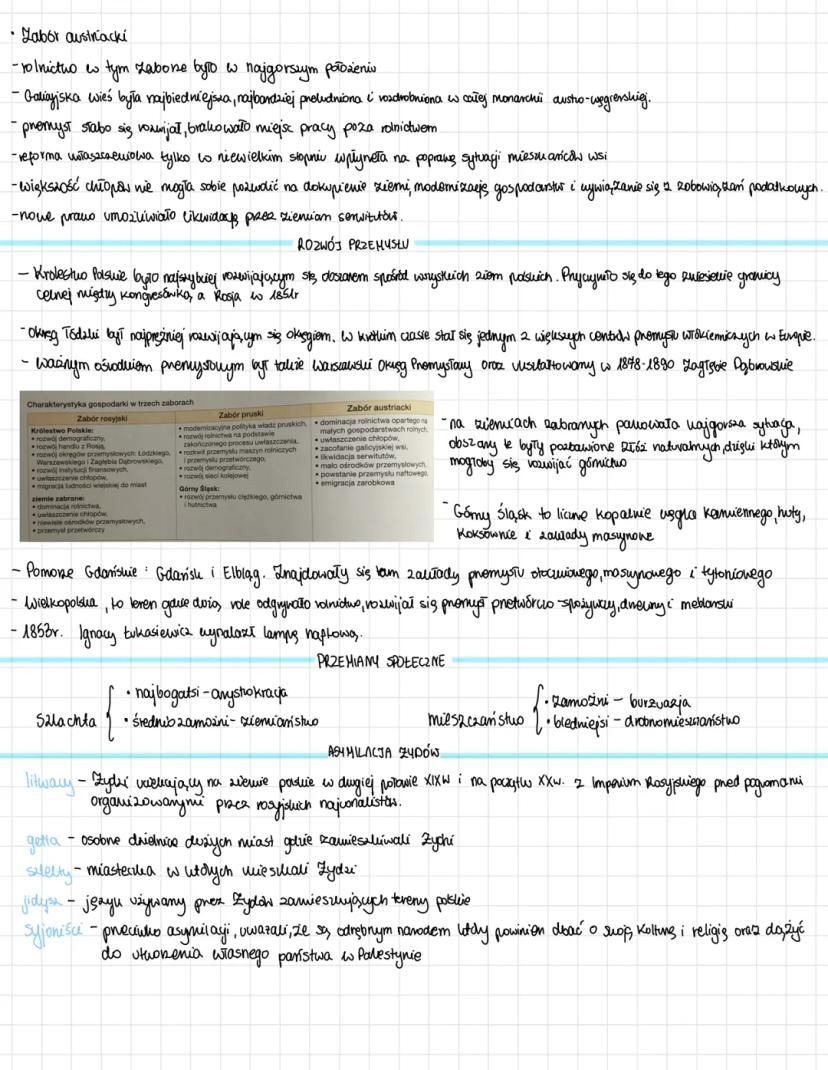 • Zabór austriacki
- rolnictwo w tym zaborze było w najgorszym położeniu
- Galicyjska wieś była najbiedniejsza, najbardziej przeludniona i rozdrobniona w całej monarchii austro-węgierskiej.
- przemysł słabo się rozwijał, brakowało miejsc pracy poza rolnictwem
- reforma uwłaszczeniowa tylko w niewielkim stopniu wpłynęła na poprawę sytuacji mieszkańców wsi
- większość chłopów nie mogła sobie pozwolić na dokupienie ziemi, modernizację gospodarstw i wywiązanie się z zobowiązań podatkowych.
- nowe prawo umożliwiało likwidację przez ziemian serwitutów.
ROZWÓJ PRZEMYSŁU
- Królestwo Polskie było najszybciej rozwijającym się obszarem spośród wszystkich ziem polskich. Przyczyniło się do tego zniesienie granicy
celnej między Kongresówką, a Rosją w 1851r
- Okręg Łódzki był najprężniej rozwijającym się okręgiem. W krótkim czasie stał się jednym z większych centrów przemysłu włókienniczych w Europie.
- Ważnym ośrodkiem przemysłowym był także Warszawski Okręg Przemysłowy oraz ukształtowany w 1878-1890 Zagłębie Dąbrowskie
Charakterystyka gospodarki w trzech zaborach
Zabór rosyjski
Królestwo Polskie:
• rozwój demograficzny,
• rozwój handlu z Rosją,
• rozwój okręgów przemysłowych: Łódzkiego,
Warszawskiego i Zagłębia Dąbrowskiego,
• rozwój instytucji finansowych,
• uwłaszczenie chłopów,
• migracja ludności wiejskiej do miast
ziemie zabrane:
• dominacja rolnictwa,
• uwłaszczenie chłopów,
• niewiele ośrodków przemysłowych,
• przemysł przetwórczy
Zabór pruski
• modernizacyjna polityka władz pruskich,
• rozwój rolnictwa na podstawie
zakończonego procesu uwłaszczenia,
• rozkwit przemysłu maszyn rolniczych
i przemysłu przetwórczego,
• rozwój demograficzny,
• rozwój sieci kolejowej
Górny Śląsk:
• rozwój przemysłu ciężkiego, górnictwa
i hutnictwa
Zabór austriacki
• dominacja rolnictwa opartego na
małych gospodarstwach rolnych,
• uwłaszczenie chłopów,
• zacofanie galicyjskiej wsi,
• likwidacja serwitutów,
• mało ośrodków przemysłowych,
• powstanie przemysłu naftowego,
• emigracja zarobkowa
- na ziemiach zabranych panowała najgorsza sytuacja,
obszary te były pozbawione złóż naturalnych dzięki którym
mogłoby się rozwijać górnictwo
- Górny Śląsk to liczne kopalnie węgla kamiennego, huty,
koksownie i zakłady maszynowe
- Pomorze Gdańskie : Gdańsk i Elbląg. Znajdowały się tam zakłady przemysłu stoczniowego, maszynowego i tytoniowego
- Wielkopolska, to teren gdzie dużą role odgrywało rolnictwo, rozwijał się przemysł przetwórczo-spożywczy, drzewny i meblarski
- 1853r. Ignacy Łukasiewicz wynalazł lampę naftową.
PRZEMIANY SPOŁECZNE
Szlachta
• najbogatsi - arystokracja
• średnio zamożni - ziemiaństwo
mieszczaństwo
• zamożni - burżuazja
• biedniejsi - drobnomieszczaństwo
ASYMILACJA ŻYDÓW
litwacy - Żydzi uciekający na ziemie polskie w drugiej połowie XIXw i na początku XXw. z Imperium Rosyjskiego przed pogromami
organizowanymi przez rosyjskich nacjonalistów.
getta - osobne dzielnice dużych miast gdzie zamieszkiwali Żydzi
sztetty - miasteczka w których mieszkali Żydzi
jidysz - język używany przez Żydów zamieszkujących tereny polskie
Syjoniści - przeciwko asymilacji, uważali, że są odrębnym narodem który powinien dbać o swoją kulturę i religię oraz dążyć
do utworzenia własnego państwa w Palestynie